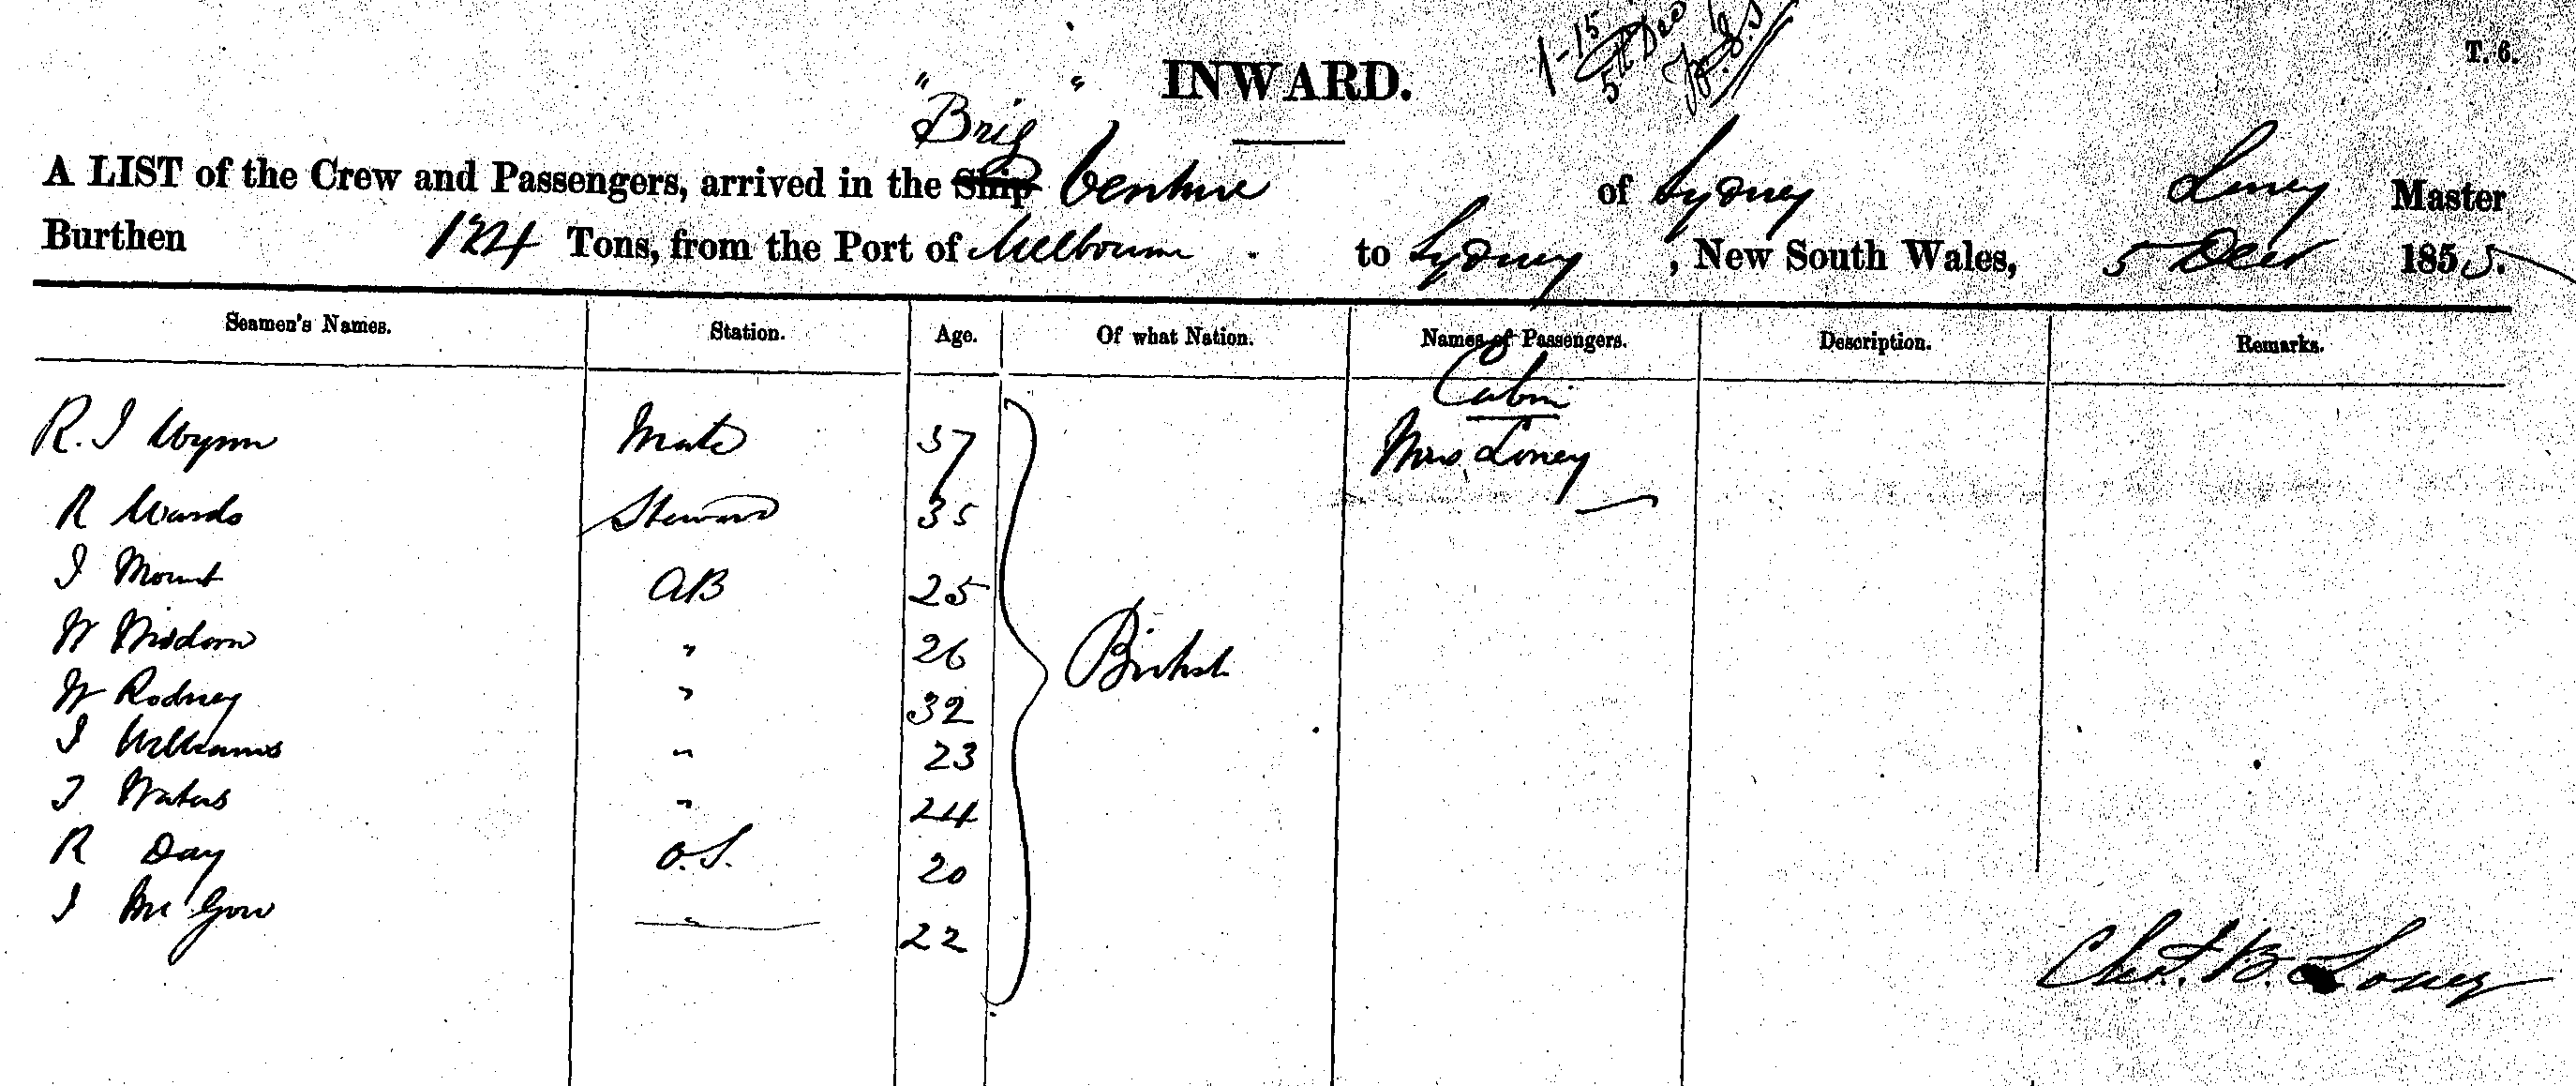 T. 6.
INWARD.
1-15
5th Dec
" Brig "
A LIST of the Crew and Passengers, arrived in the Ship Venture of Sydney Loney Master
Burthen 124 Tons, from the Port of Melbourne to Sydney, New South Wales, 5 Decr 1855.
Seamen's Names. Station. Age. Of what Nation. Names of Passengers. Description. Remarks.
Cabin
R. J Wynn Mate 37 Mrs. Loney
R Wards Steward 35
J Mount AB 25
W " 26 British
W Rodney " 32
J Williams " 23
J Waters " 24
R Day O.S. 20
J McGow " 22
Chas. B. Loney